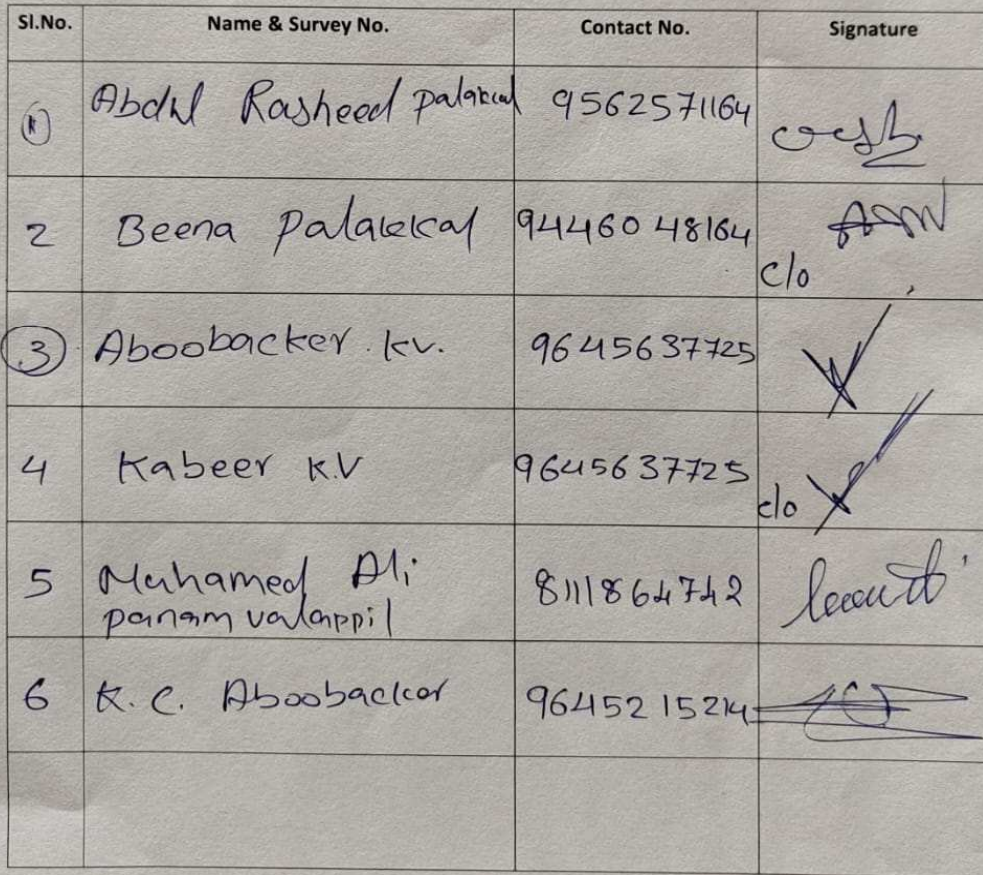 Sl.No. Name & Survey No. Contact No. Signature
1 Abdul Rasheed palakkal 9562571164
2 Beena Palakkal 94460 48164
c/o
3 Aboobacker . kv. 9645637725
4 Kabeer K.V 9645637725
c/o
5 Muhamed Ali 8111864742
panam valappil
6 K. C. Aboobacker 96452 15214